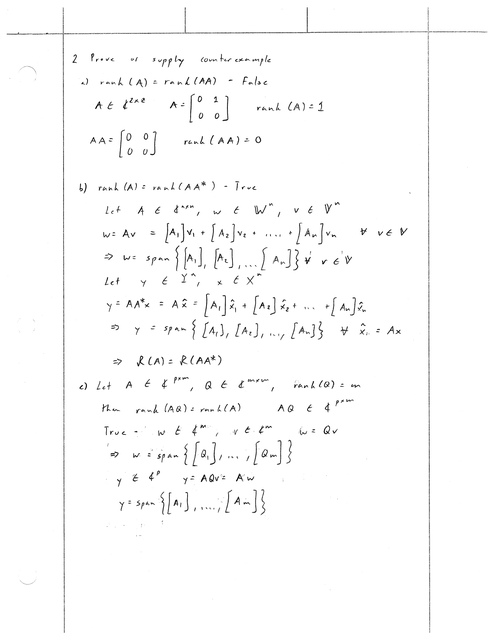 2 Prove or supply counterexample
a) rank (A) = rank (AA) - False
A ∈ ¢²ˣ² A = [0 1; 0 0] rank (A) = 1
AA = [0 0; 0 0] rank (AA) = 0
b) rank (A) = rank (AA*) - True
Let A ∈ ¢ⁿˣⁿ, w ∈ Wⁿ, v ∈ Vⁿ
w = Av = [A₁]v₁ + [A₂]v₂ + .... + [Aₙ]vₙ ∀ v ∈ V
⇒ w = span {[A₁], [A₂], ... [Aₙ]} ∀ v ∈ V
Let y ∈ Yⁿ, x ∈ Xⁿ
y = AA*x = A x̂ = [A₁] x̂₁ + [A₂] x̂₂ + ... + [Aₙ] x̂ₙ
⇒ y = span {[A₁], [A₂], ..., [Aₙ]} ∀ x̂. = Ax
⇒ R(A) = R(AA*)
c) Let A ∈ ¢ᵖˣᵐ, Q ∈ ¢ᵐˣᵐ, rank (Q) = m
then rank (AQ) = rank (A) AQ ∈ ¢ᵖˣᵐ
True - w ∈ ¢ᵐ, v ∈ ¢ᵐ w = Qv
⇒ w = span {[Q₁], ..., [Qm]}
y ∈ ¢ᵖ y = AQv = Aw
y = span {[A₁], ...., [Am]}